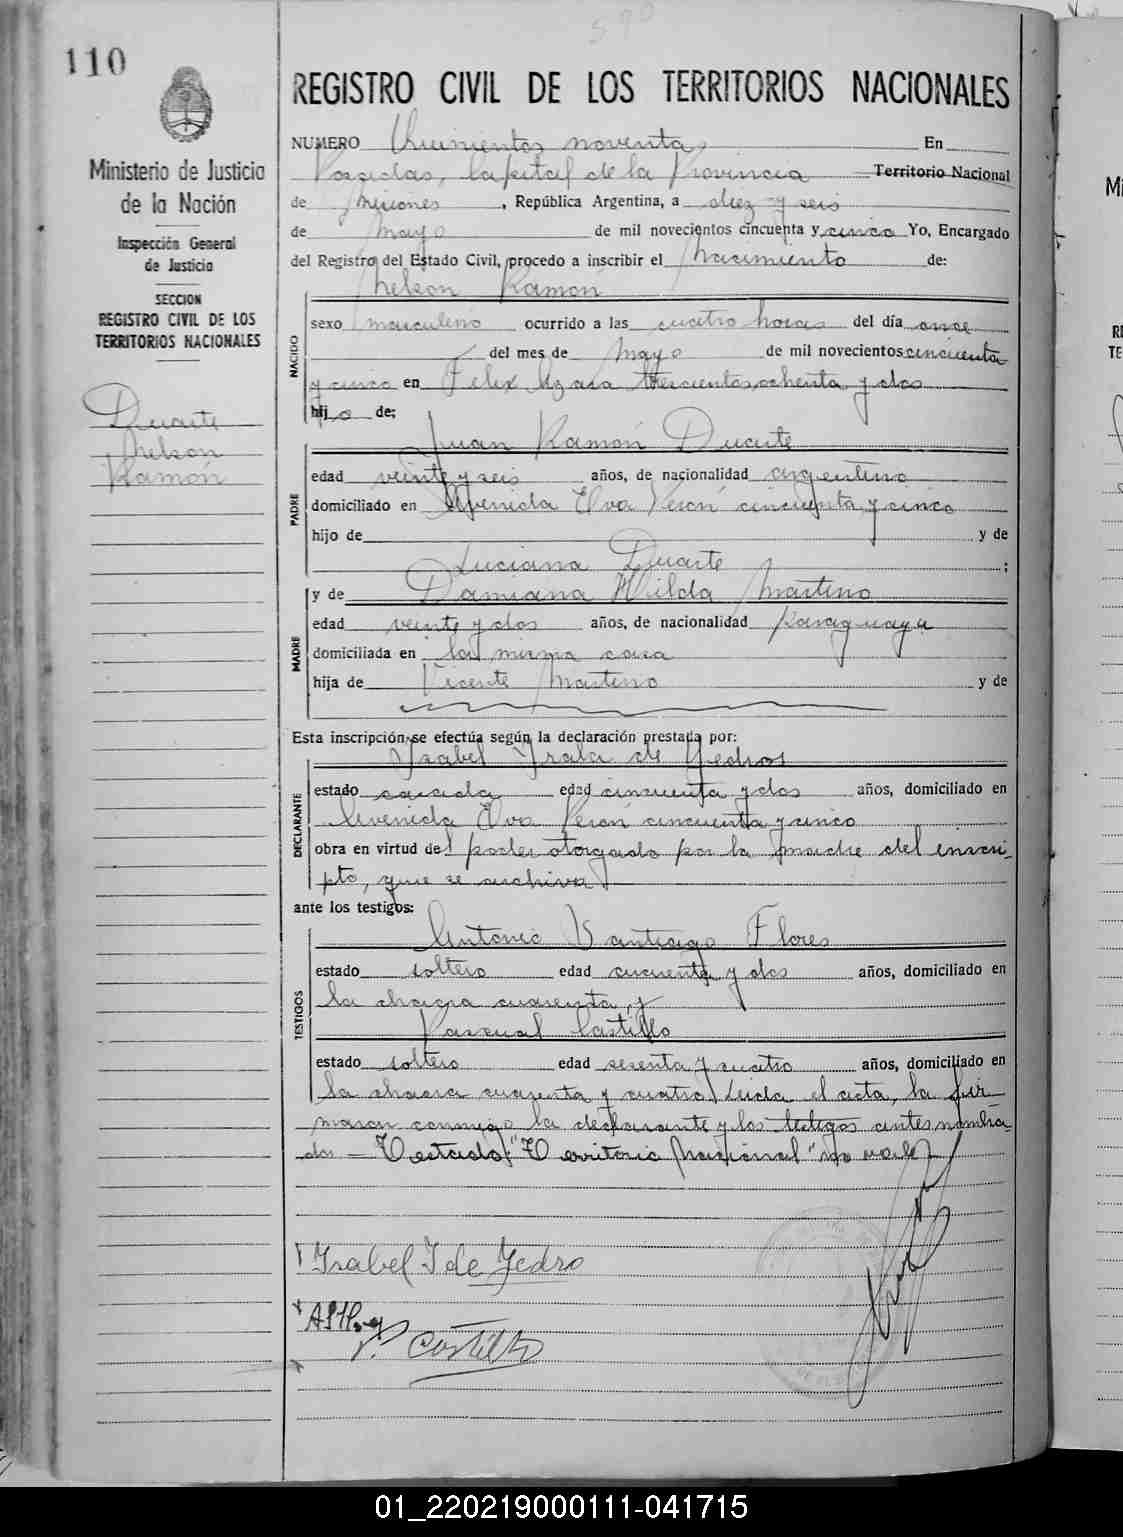 590
110
REGISTRO CIVIL DE LOS TERRITORIOS NACIONALES
Ministerio de Justicia
de la Nación
Inspección General
de Justicia
SECCION
REGISTRO CIVIL DE LOS
TERRITORIOS NACIONALES
Duarte
Nelson
Ramón
NUMERO Quinientos noventa En
Posadas, Capital de la Provincia Territorio Nacional
de Misiones, República Argentina, a diez y seis
de mayo de mil novecientos cincuenta y cinco Yo, Encargado
del Registro del Estado Civil, procedo a inscribir el Nacimiento de:
Nelson Ramón
NACIDO
sexo masculino ocurrido a las cuatro horas del día once
del mes de Mayo de mil novecientos cincuenta
y cinco en Felix Azara trescientos ochenta y dos
hijo de:
Juan Ramón Duarte
PADRE
edad veinte y seis años, de nacionalidad argentino
domiciliado en Avenida Eva Perón cincuenta y cinco
hijo de y de
Luciana Duarte ;
y de Damiana Hilda Martino
MADRE
edad veinte y dos años, de nacionalidad paraguaya
domiciliada en la misma casa
hija de Vicente Martino y de
Esta inscripción se efectúa según la declaración prestada por:
Ysabel Yrala de Yedros
DECLARANTE
estado casada edad cincuenta y dos años, domiciliado en
Avenida Eva Perón cincuenta y cinco
obra en virtud del poder otorgado por la madre del inscri-
pto, que se archiva.
ante los testigos:
Antonio Santiago Flores
TESTIGOS
estado soltero edad cuarenta y dos años, domiciliado en
la chacra cuarenta, y
Pascual Castillo
estado soltero edad sesenta y cuatro años, domiciliado en
la chacra cuarenta y cuatro. Leida el acta, la fir-
maron conmigo la declarante y los testigos antes nombra-
dos - Testado: "Territorio Nacional" no vale
Ysabel I de Yedro
P. Castillo
01_220219000111-041715